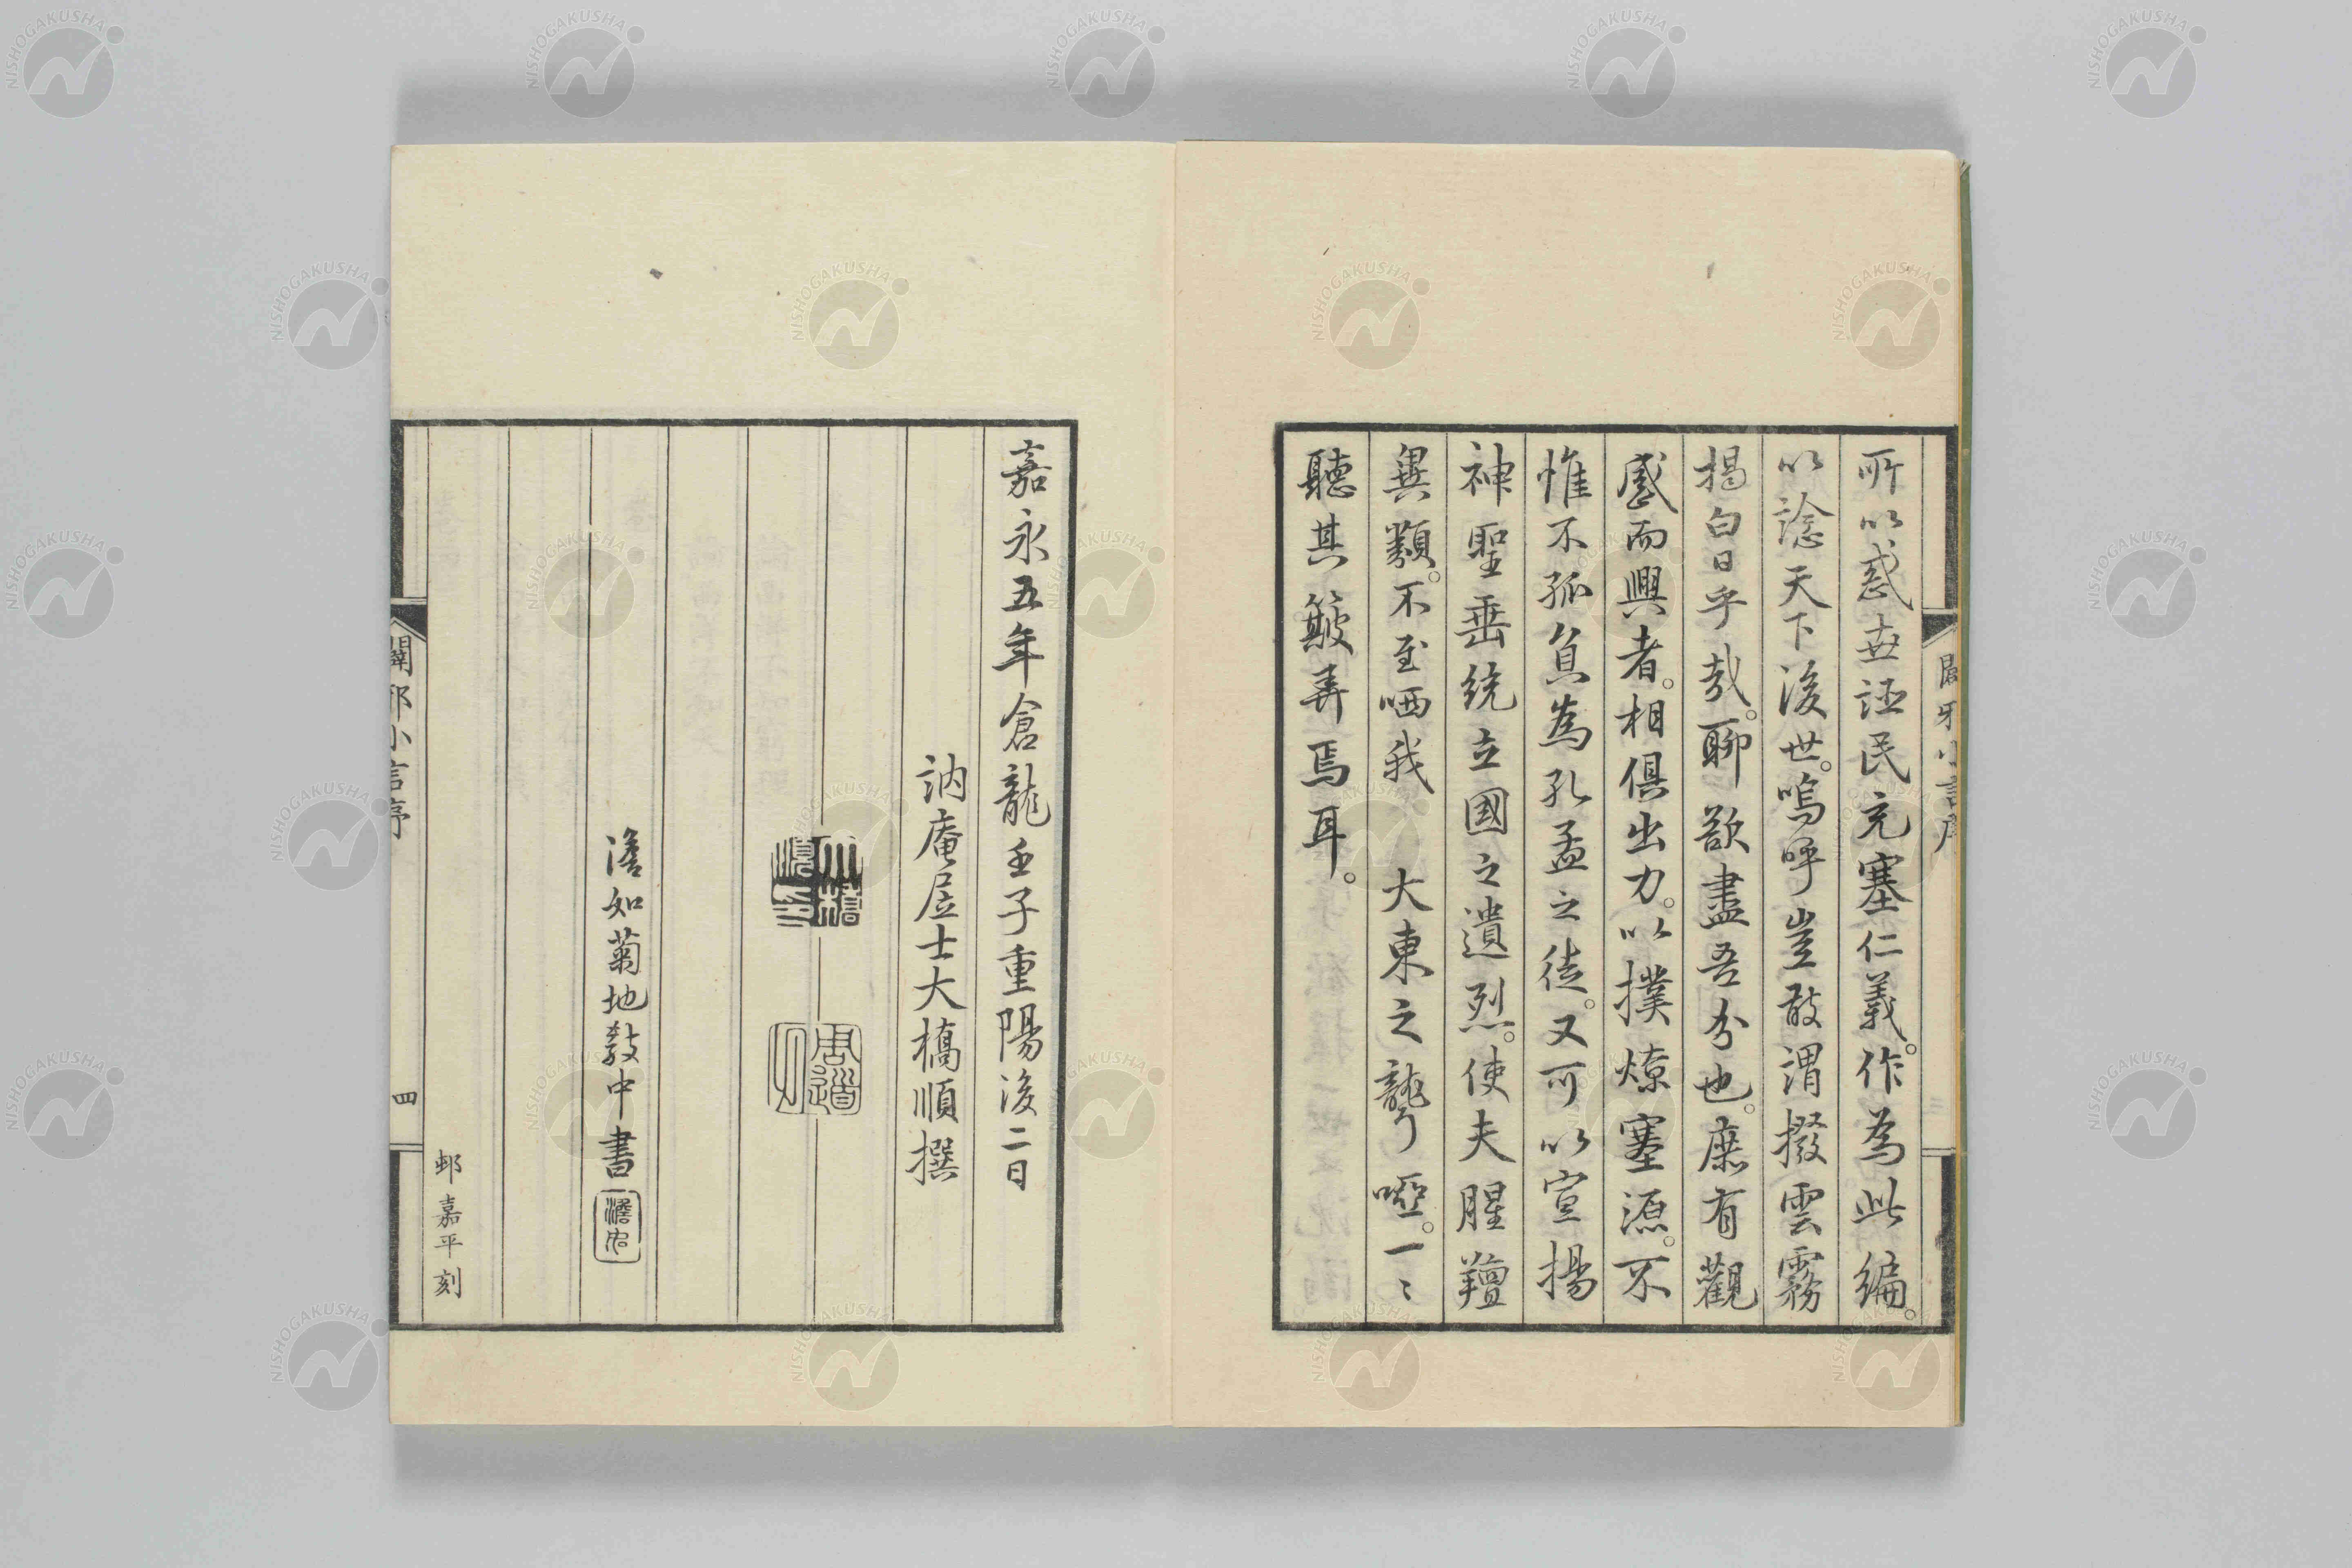 所以惑世誣民充塞仁義。作為此編。
以諗天下後世。嗚呼豈敢謂掇雲霧
揭白日乎哉。聊欲盡吾分也。庶有觀
感而興者。相俱出力。以撲燎塞源。不
惟不孤負為孔孟之徒。又可以宣揚
神聖垂統立國之遺烈。使夫腥羶
異類。不至哂我　大東之聾啞。一〻
聽其簸弄焉耳。
嘉永五年倉龍壬子重陽後二日
訥庵居士大橋順撰
大橋順印
周道
澹如菊地教中書
澹如
邨嘉平刻
闢邪小言序
四
闢邪小言序
NISHOGAKUSHA